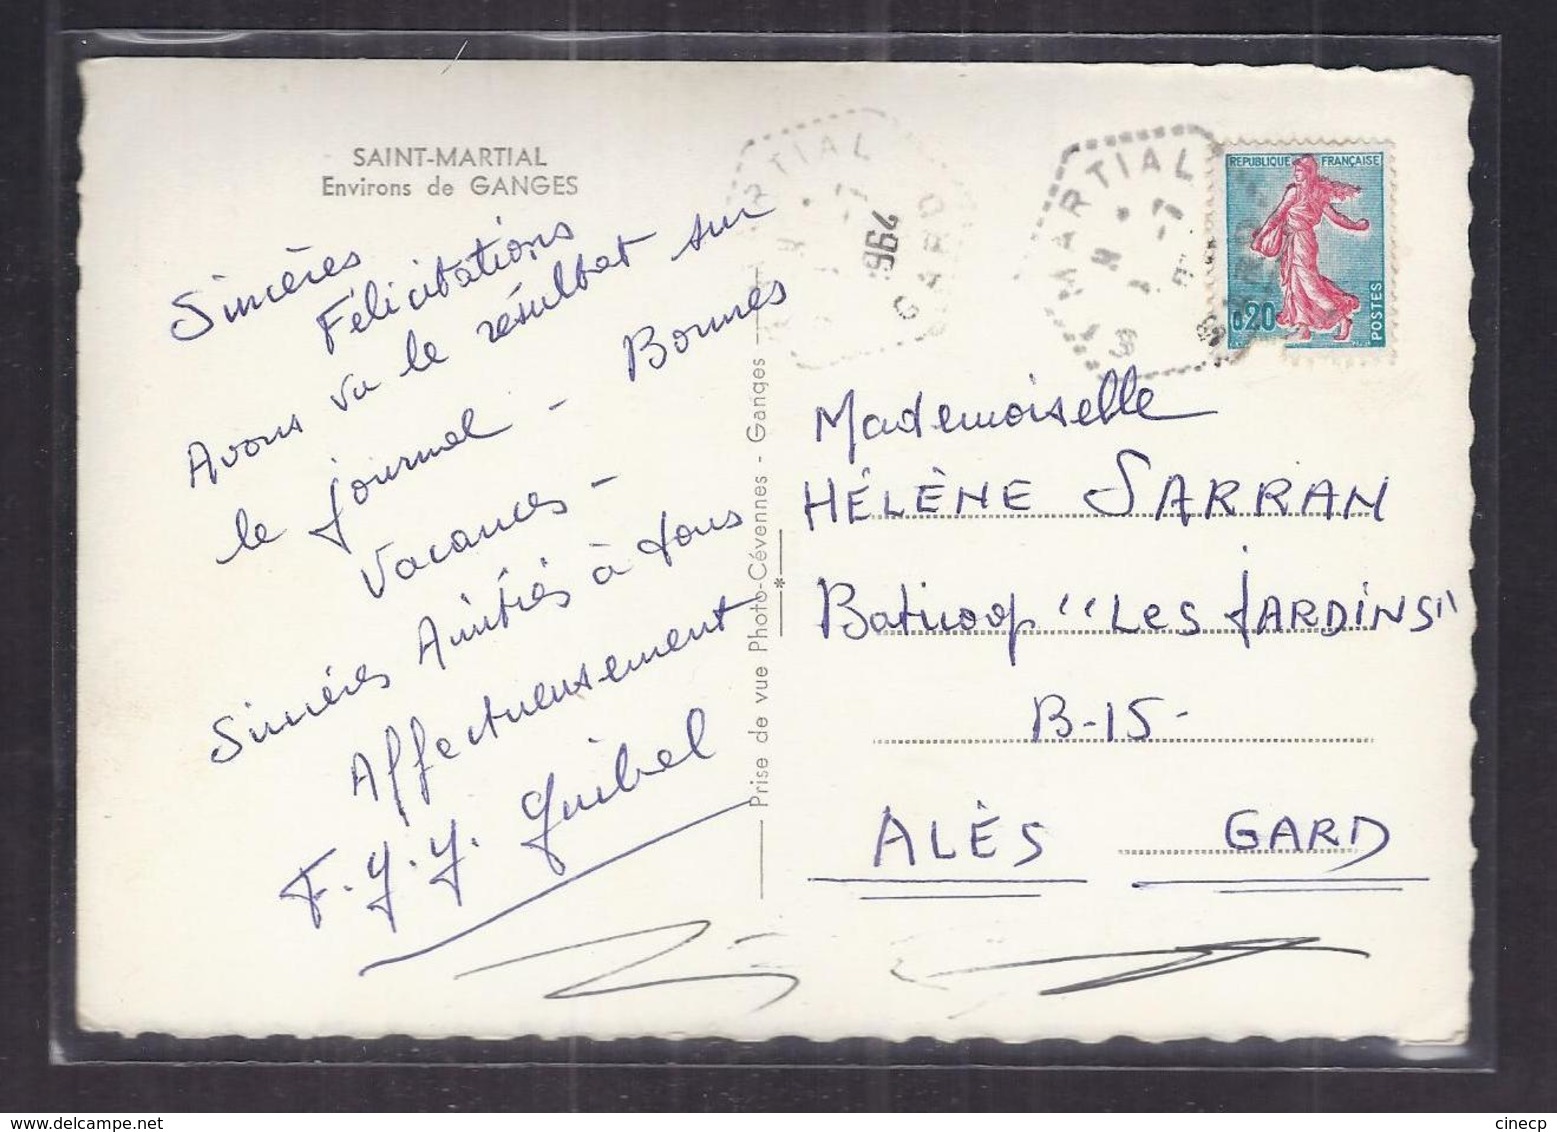 SAINT-MARTIAL
Environs de GANGES
Sincères
Félicitations
Avons vu le résultat sur
le journal - Bonnes
Vacances -
Sincères Amitiés à tous
Affectueusement
F. y. y. Guibal
Prise de vue Photo-Cévennes - Ganges
MARTIAL
GARD
MARTIAL
REPUBLIQUE FRANÇAISE
0,20
POSTES
Mademoiselle
HÉLÈNE SARRAN
Baticoop "LES JARDINS"
B-15-
ALÈS GARD
cinecp